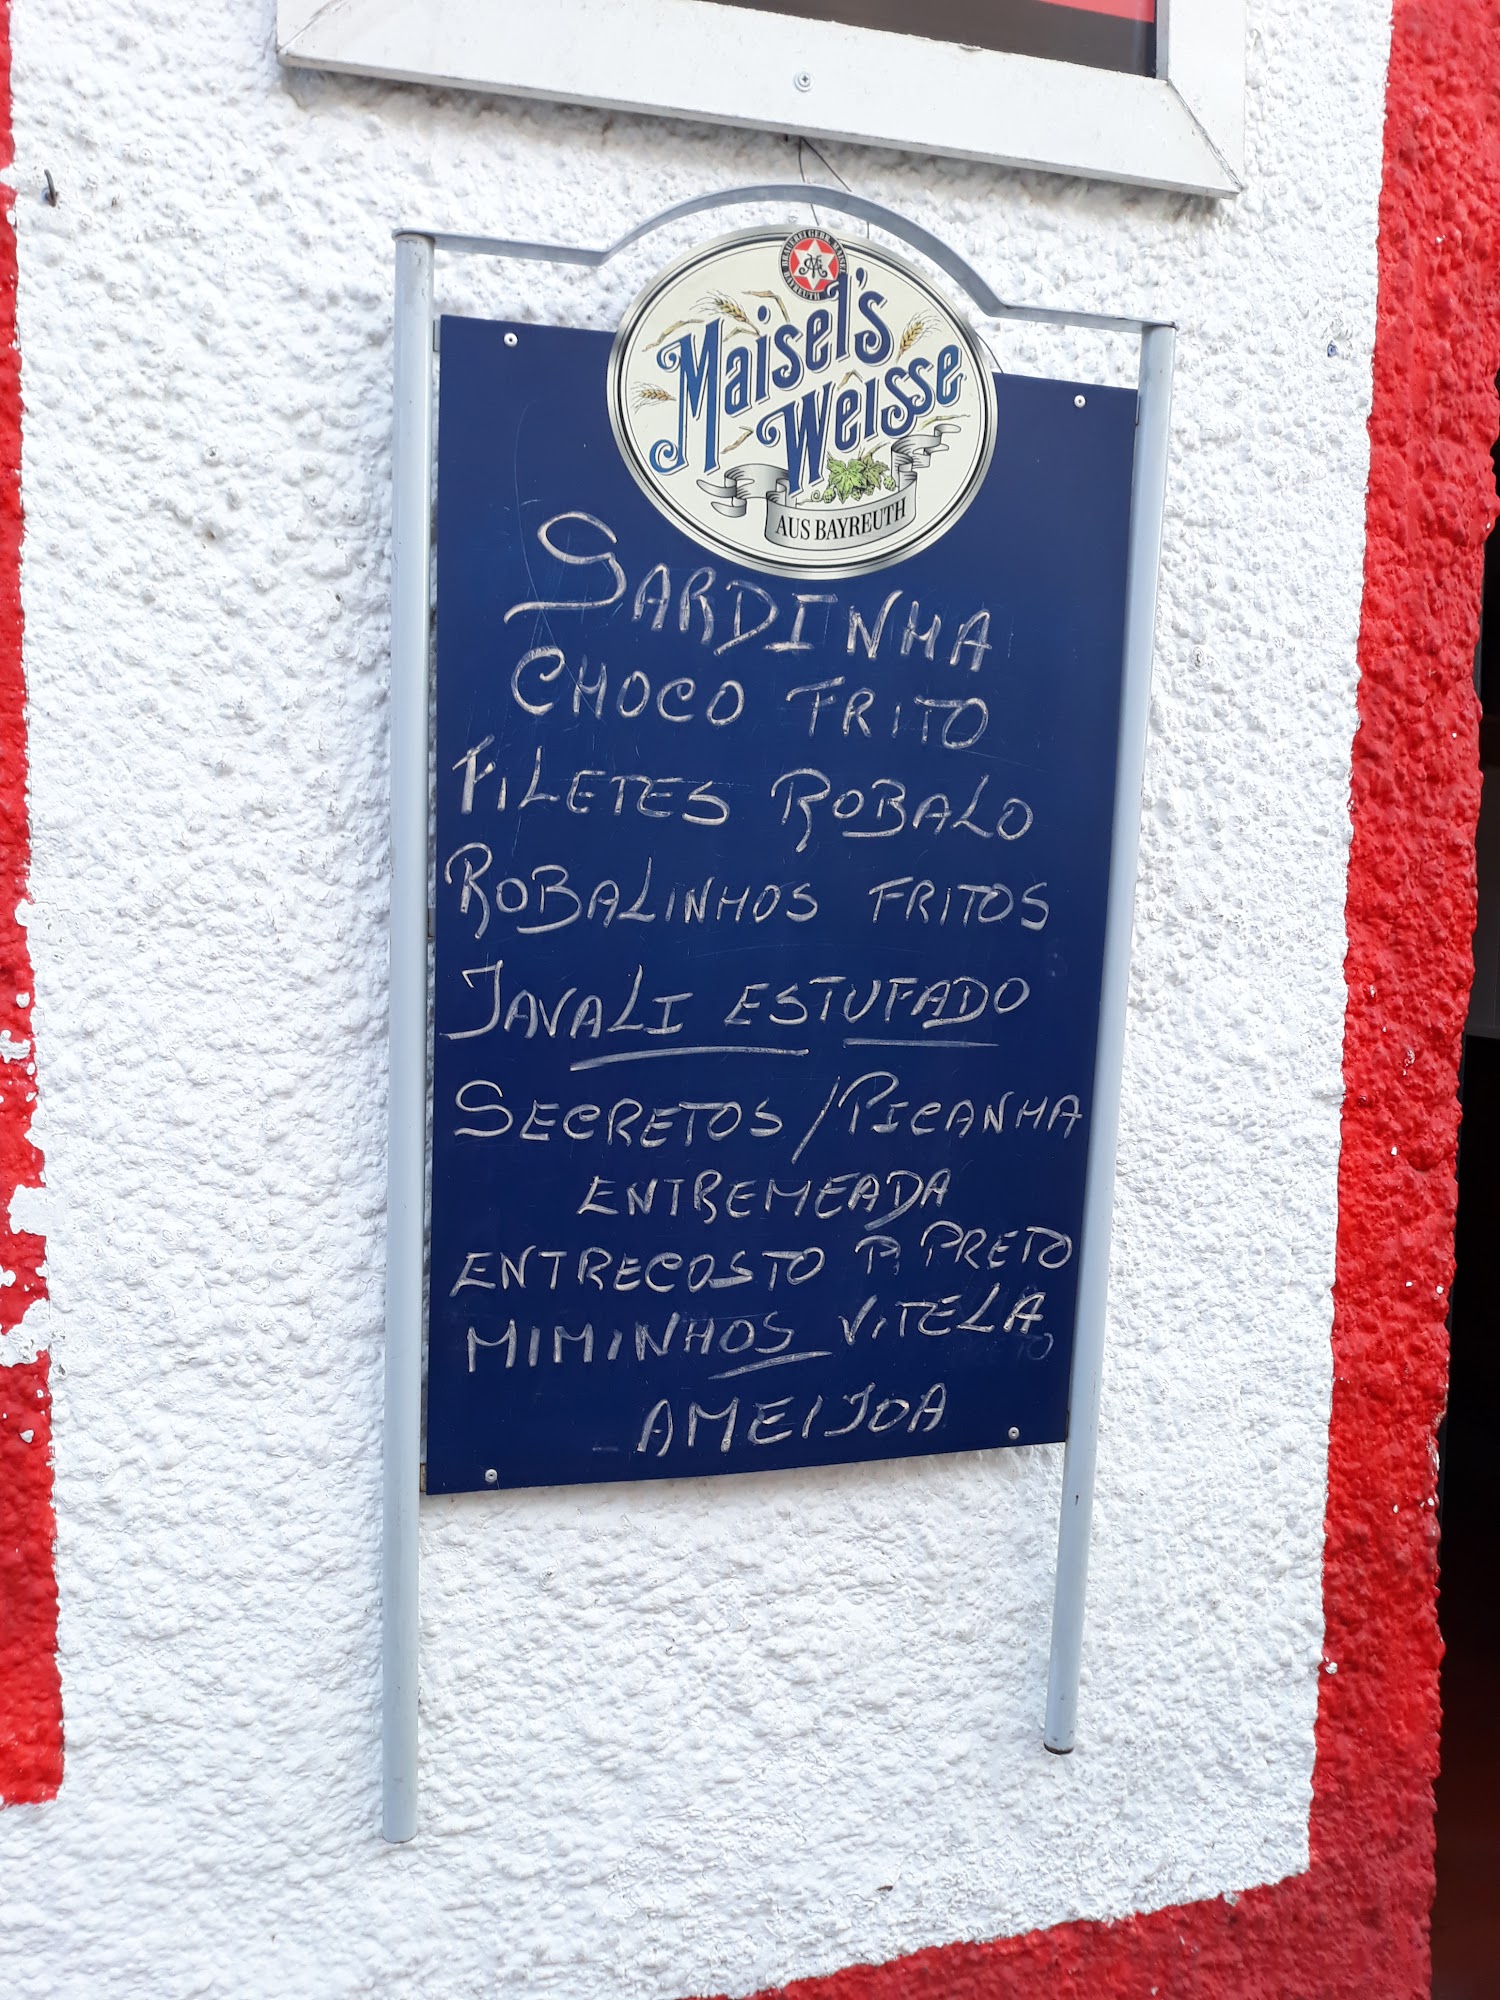 BRAUEREI GEBR. MAISEL
BAYREUTH
Maisel's
Weisse
AUS BAYREUTH
SARDINHA
CHOCO FRITO
FILETES ROBALO
ROBALINHOS FRITOS
JAVALI ESTUFADO
SECRETOS / PICANHA
ENTREMEADA
ENTRECOSTO P. PRETO
MIMINHOS VITELA
AMEIJOA